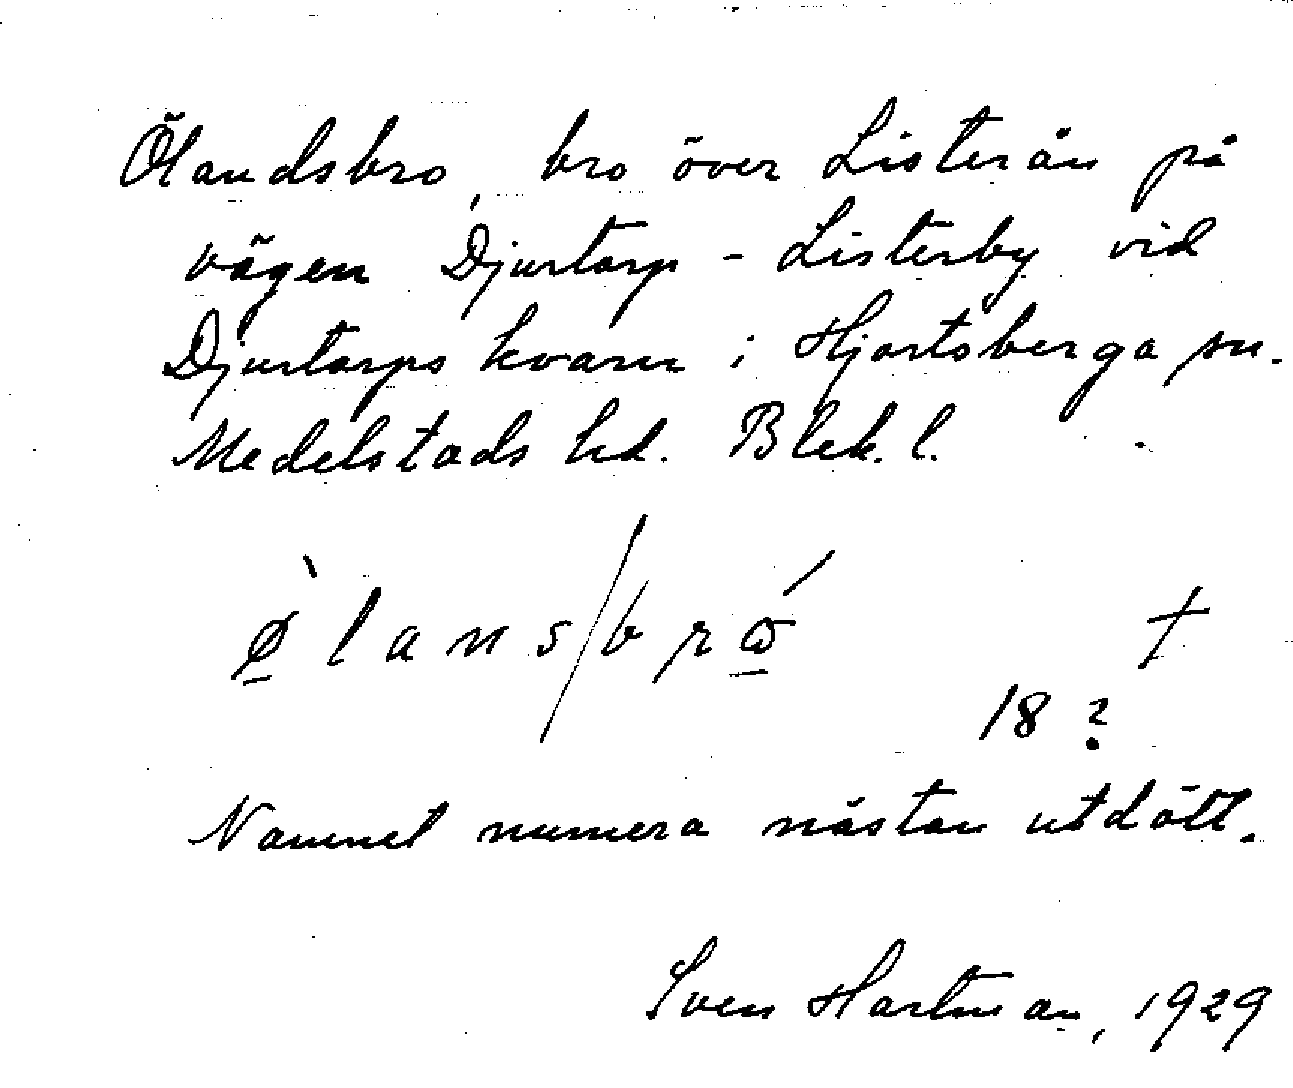 Ölandsbro, bro över Listerån på
vägen Djurtorp - Listerby vid
Djurtorps kvarn i Hjortsberga sn.
Medelstads hd. Blek. l.
ø̀lans/bró †
18 ?
Namnet numera nästan utdött.
Sven Hartman, 1929